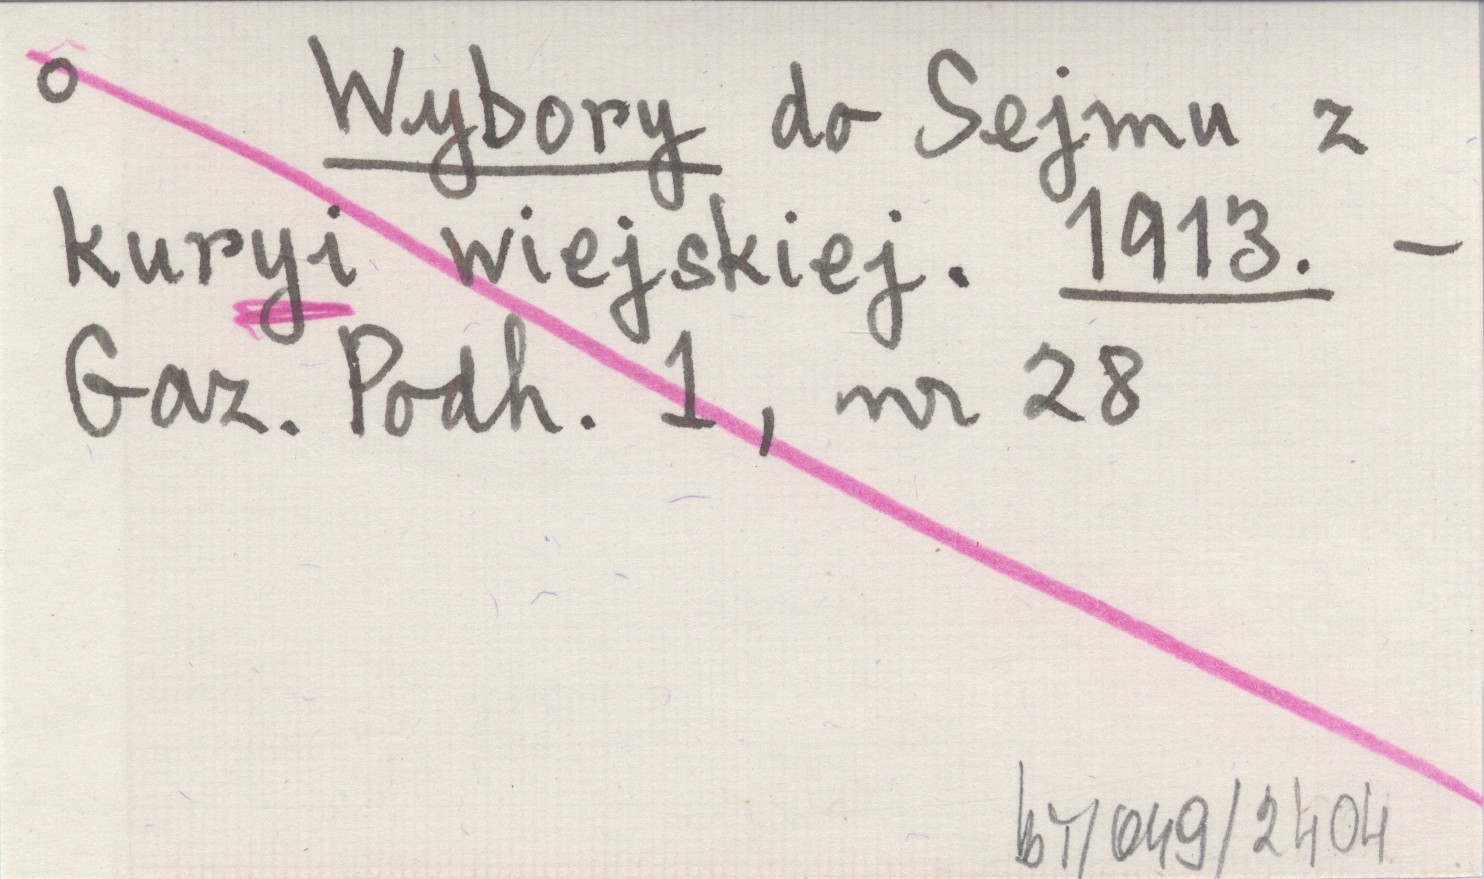 o Wybory do Sejmu z
kuryi wiejskiej. 1913. –
Gaz. Podh. 1, nr 28
bT/049/2404